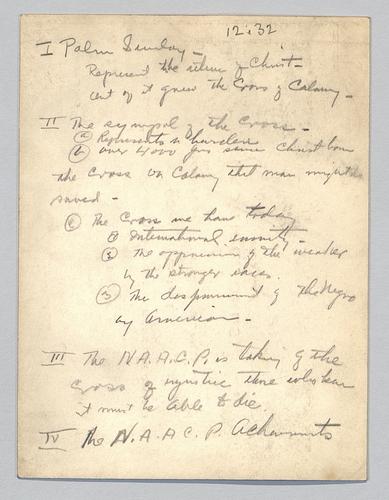 12:32
I Palm Sunday -
Represent the return of Christ -
out of it grew the Cross of Calvary -
II The symbol of the Cross -
(a) Represents a burden
(b) over 4000 years since Christ bore
the Cross on Calvary that man might be
saved -
(c) The Cross we have today
(1) International enmity -
(2) The oppression of the weaker
by the stronger races.
(3) The of the Negro
by American -
III The N.A.A.C.P. is taking of the
Cross of injustice those who bear
it must be able to die.
IV The N.A.A.C.P. Achievements